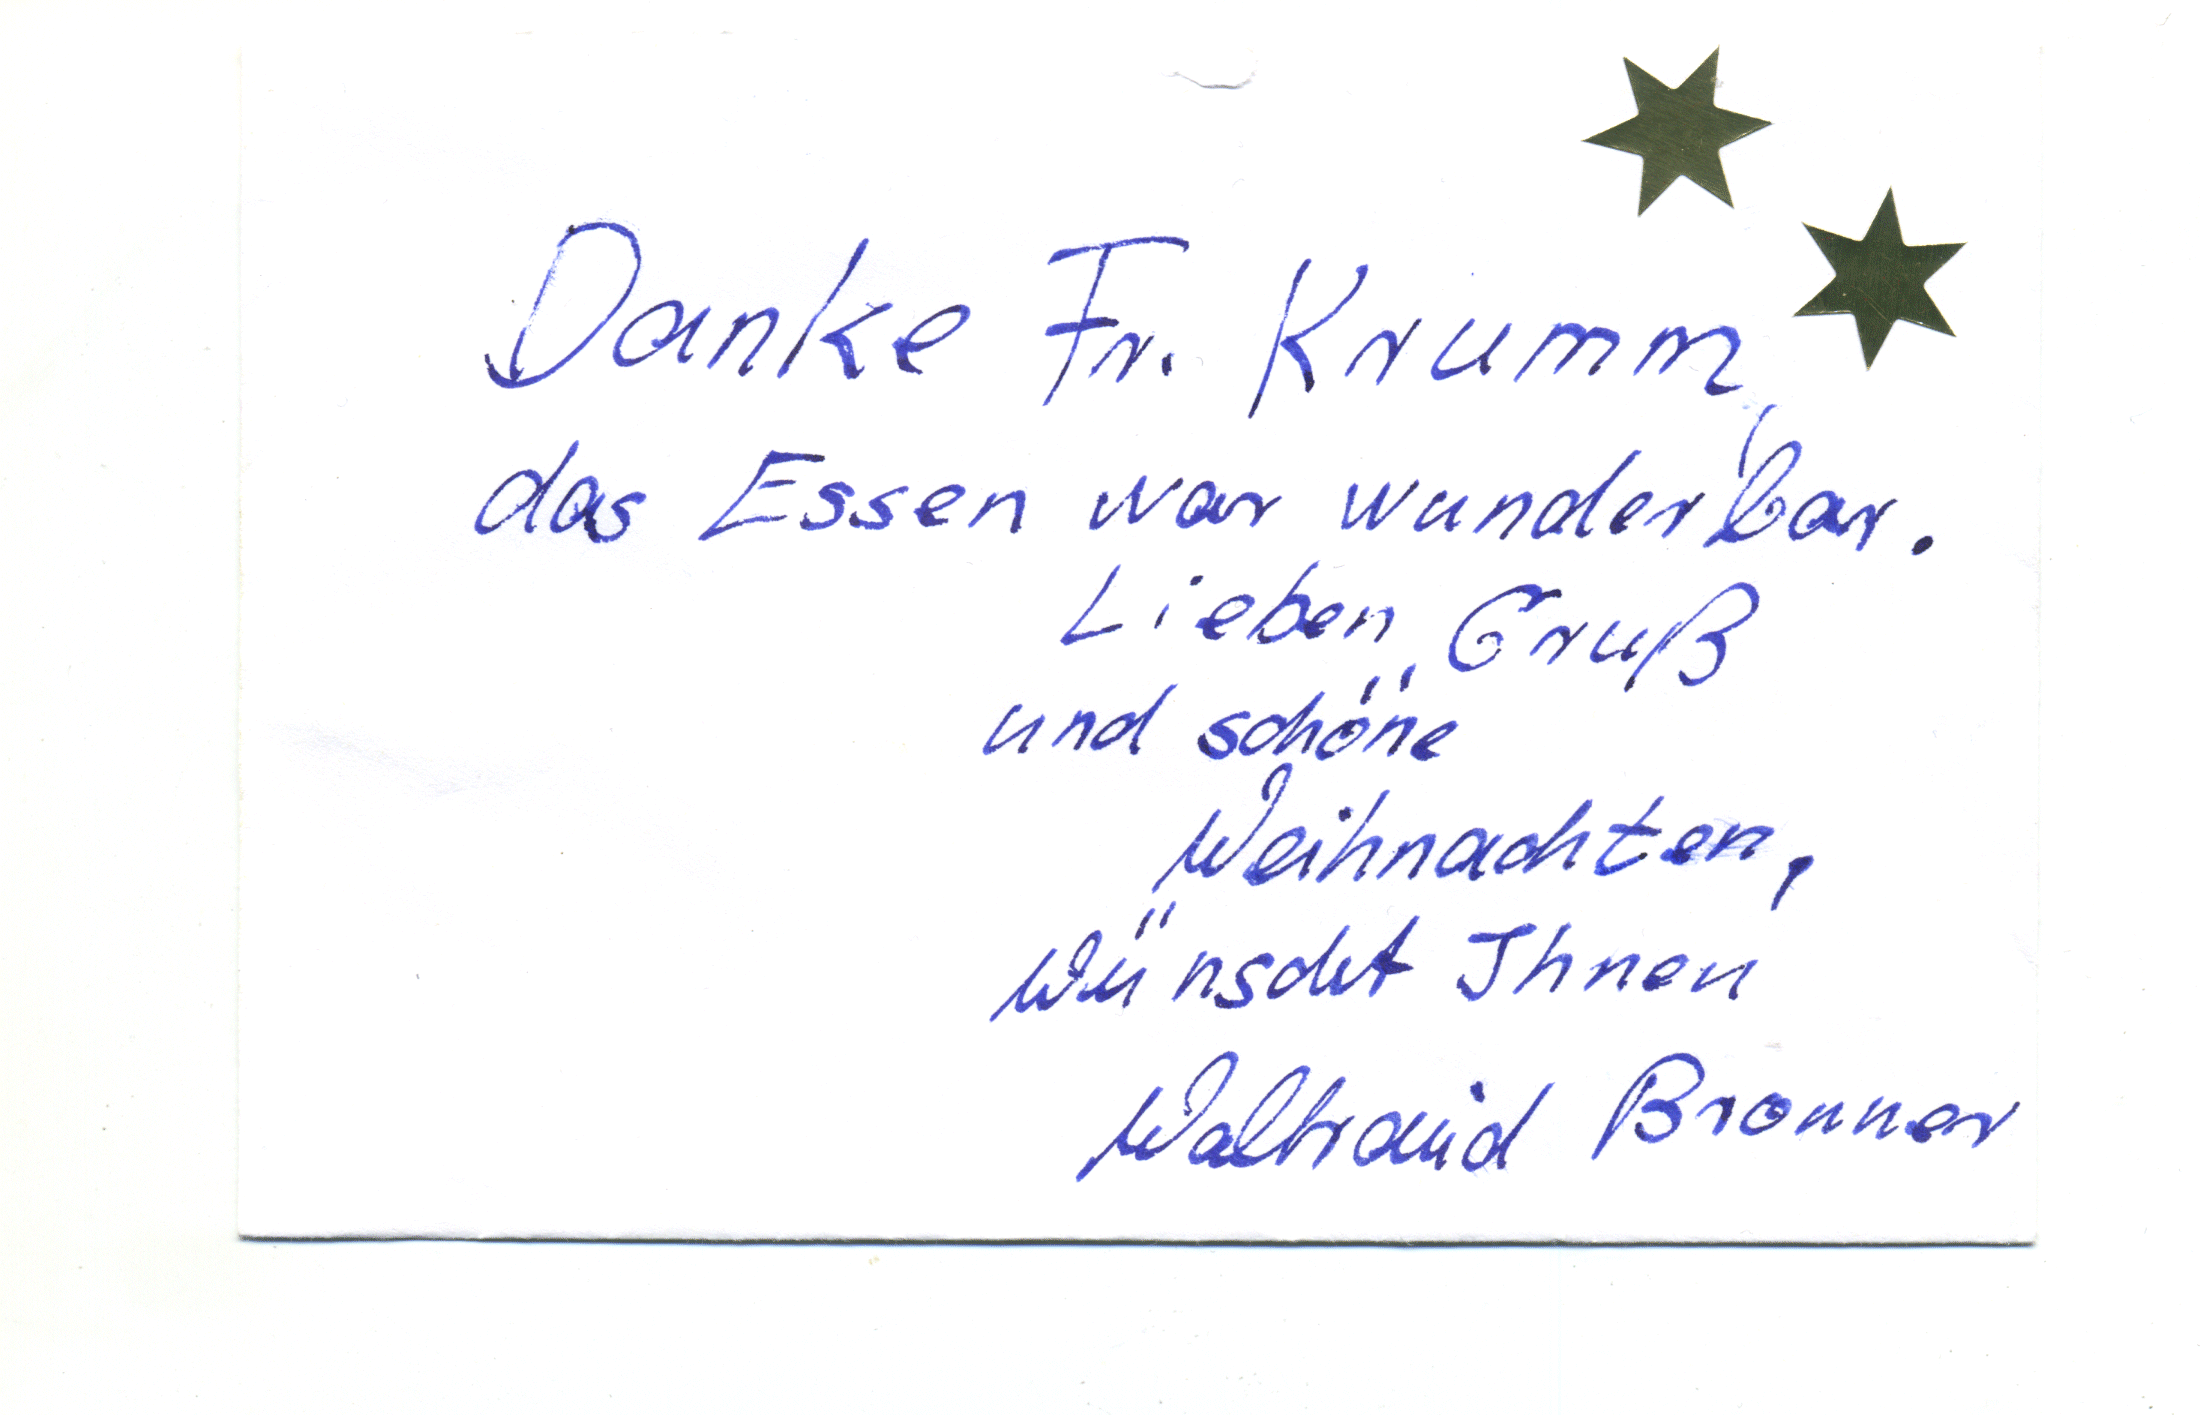 Danke Fr. Krumm,
das Essen war wunderbar.
Lieben Gruß
und schöne
Weihnachten,
wünscht Ihnen
Waltraud Bronner